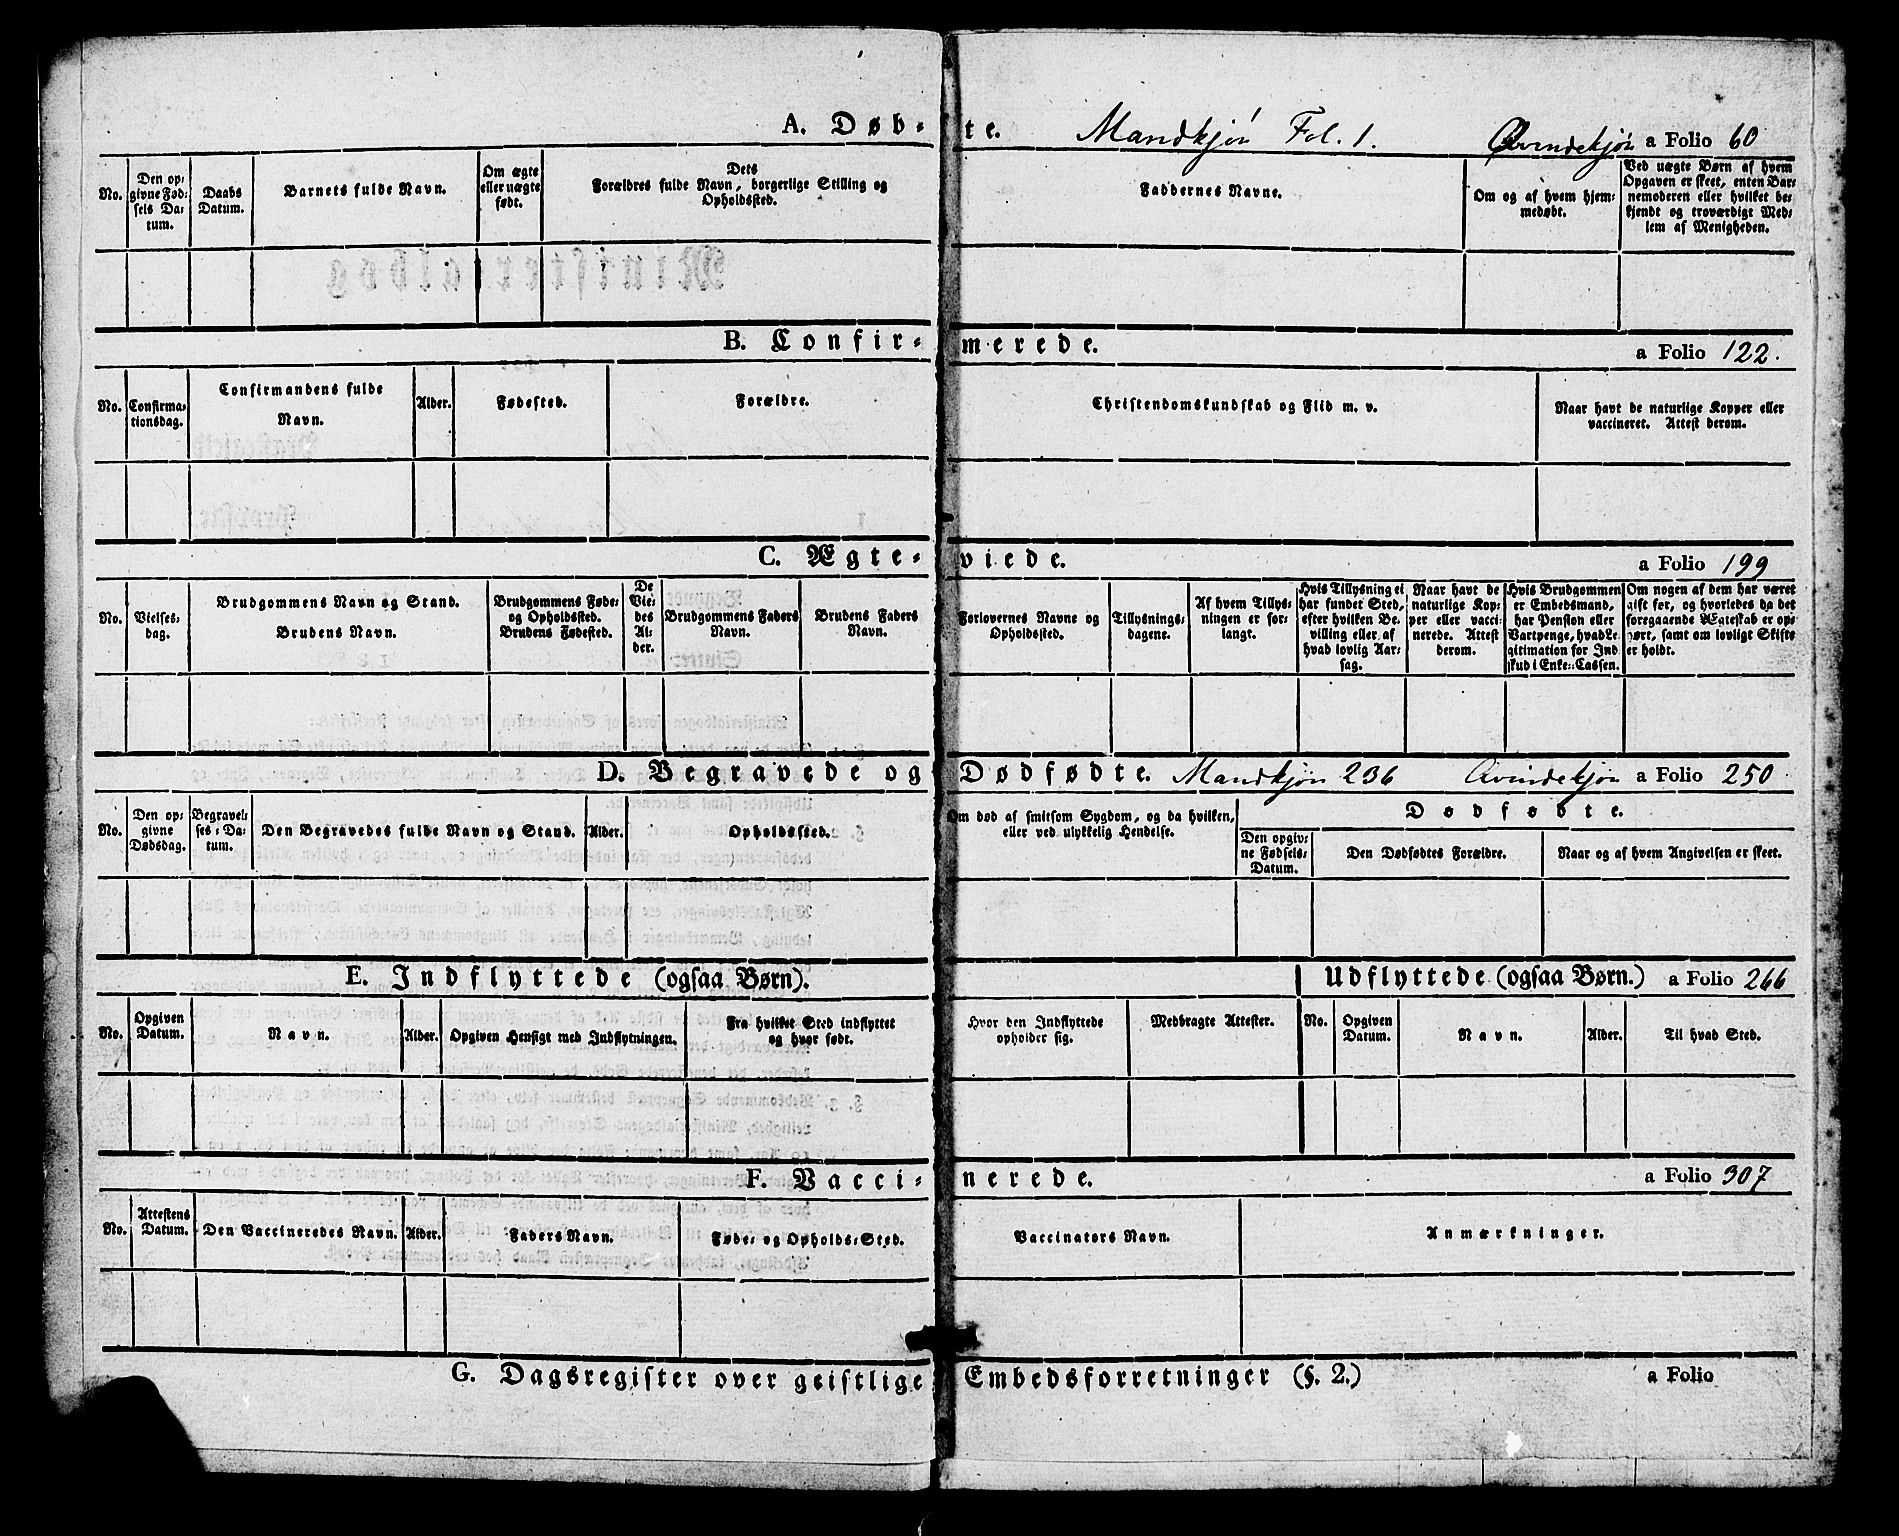 A. Døb-te. Mandkjøn Fol. 1. Qvindekjøn a Folio 60
No.
Den op-
givne Fød-
sels Da-
tum.
Daabs
Datum.
Barnets fulde Navn.
Om ægte
eller uægte
født.
Dets
Forældres fulde Navn, borgerlige Stilling og
Opholdssted.
Faddernes Navne.
Om og af hvem hjem-
medøbt.
Ved uægte Børn af hvem
Opgaven er skeet, enten Bar-
nemoderen eller hvilket be-
kjendt og troværdigt Med-
lem af Menigheden.
Ministerialbog
B. Confir-merede. a Folio 122.
No.
Confirma-
tionsdag.
Confirmandens fulde
Navn.
Alder.
Fødested.
Forældre.
Christendomskundskab og Flid m. v.
Naar havt de naturlige Kopper eller
vaccineret. Attest derom.
C. Ægte-viede. a Folio 199
No.
Vielses-
dag.
Brudgommens Navn og Stand.
Brudens Navn.
Brudgommens Føde-
og Opholdssted.
Brudens Fødested.
De
Vie-
des
Al-
der.
Brudgommens Faders
Navn.
Brudens Faders
Navn.
Forlovernes Navne og
Opholdssted.
Tillysnings-
dagene.
Af hvem Tillys-
ningen er for-
langt.
Hvis Tillysning ei
har fundet Sted,
efter hvilken Be-
villing eller af
hvad lovlig Aar-
sag.
Naar havt de
naturlige Kop-
per eller vacci-
nerede. Attest
derom.
Hvis Brudgommen
er Embedsmand,
har Pension eller
Vartpenge, hvad Le-
gitimation for Ind
skud i Enke-Cassen.
Om nogen af dem har været
gift før, og hvorledes da det
foregaaende Ægteskab er op-
hørt, samt om lovligt Skifte
er holdt.
D. Begravede og Dødfødte. Mandkjøn 236 Qvindekjøn a Folio 250
No.
Den op-
givne
Dødsdag.
Begravel-
ses-Da-
tum.
Den Begravedes fulde Navn og Stand.
Alder.
Opholdssted.
Om død af smitsom Sygdom, og da hvilken,
eller ved ulykkelig Hendelse.
Dødfødte.
Den opgiv-
ne Fødsels-
Datum.
Den Dødfødtes Forældre.
Naar og af hvem Angivelsen er skeet.
E. Indflyttede (ogsaa Børn). Udflyttede (ogsaa Børn.) a Folio 266
No.
Opgiven
Datum.
Navn.
Alder.
Opgiven Hensigt med Indflytningen.
Fra hvilket Sted indflyttet
og hvor født.
Hvor den Indflyttede
opholder sig.
Medbragte Attester.
No.
Opgiven
Datum.
Navn.
Alder.
Til hvad Sted.
F. Vacci-nerede. a Folio 307
No.
Attestens
Datum.
Den Vaccineredes Navn.
Alder.
Faders Navn.
Føde- og Opholds-Sted.
Vaccinators Navn.
Anmærkninger.
G. Dagsregister over geistlige Embedsforretninger (§. 2.) a Folio